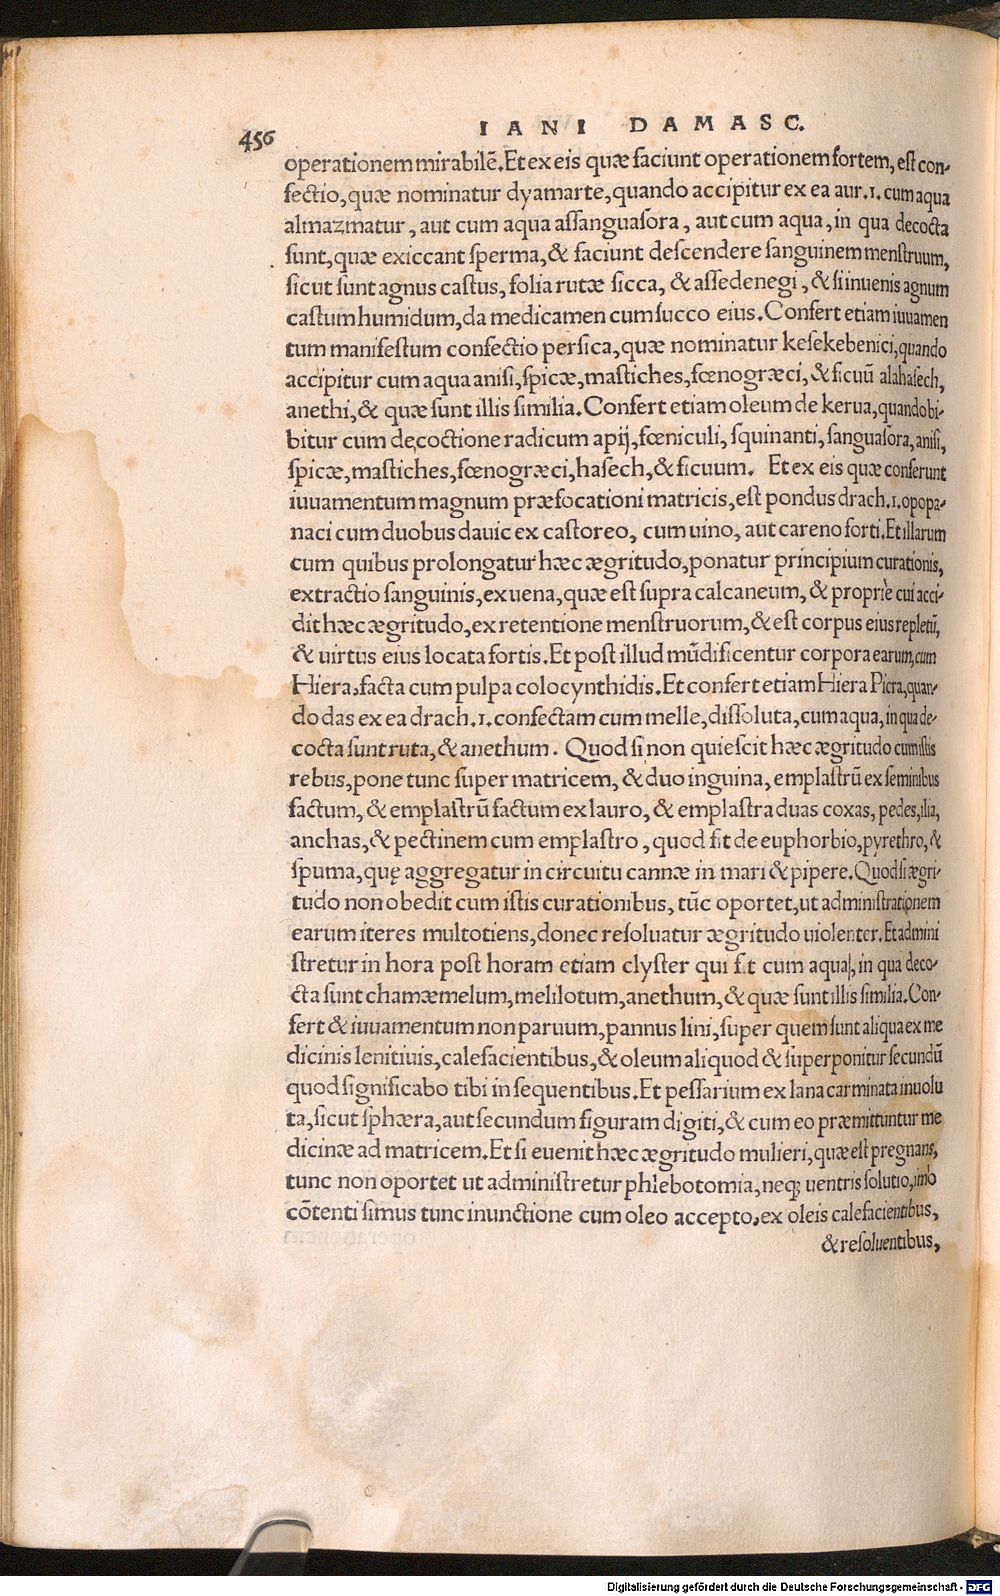 456
IANI DAMASC.
operationem mirabilẽ. Et ex eis quæ faciunt operationem fortem, est con-
fectio, quæ nominatur dyamarte, quando accipitur ex ea aur. 1. cum aqua
almazmatur, aut cum aqua assanguasora, aut cum aqua, in qua decocta
sunt, quæ exiccant sperma, & faciunt descendere sanguinem menstruum,
sicut sunt agnus castus, folia rutæ sicca, & assedenegi, & si inuenis agnum
castum humidum, da medicamen cum succo eius. Confert etiam iuuamen
tum manifestum confectio persica, quæ nominatur kesekebenici, quando
accipitur cum aqua anisi, spicæ, mastiches, fœnogræci, & ficuũ alahasech,
anethi, & quæ sunt illis similia. Confert etiam oleum de kerua, quando bi-
bitur cum decoctione radicum apij, fœniculi, squinanti, sanguasora, anisi,
spicæ, mastiches, fœnogræci, hasech, & ficuum. Et ex eis quæ conferunt
iuuamentum magnum præfocationi matricis, est pondus drach. 1. opopa-
naci cum duobus dauic ex castoreo, cum uino, aut careno forti. Et illarum
cum quibus prolongatur hæc ægritudo, ponatur principium curationis,
extractio sanguinis, ex uena, quæ est supra calcaneum, & propriè cui acci-
dit hæc ægritudo, ex retentione menstruorum, & est corpus eius repletũ,
& uirtus eius locata fortis. Et post illud mũdificentur corpora earum, cum
Hiera. facta cum pulpa colocynthidis. Et confert etiam Hiera Picra, quan-
do das ex ea drach. 1. confectam cum melle, dissoluta, cum aqua, in qua de-
cocta sunt ruta, & anethum. Quod si non quiescit hæc ægritudo cum istis
rebus, pone tunc super matricem, & duo inguina, emplastrũ ex seminibus
factum, & emplastrũ factum ex lauro, & emplastra duas coxas, pedes, ilia,
anchas, & pectinem cum emplastro, quod fit de euphorbio, pyrethro, &
spuma, quę aggregatur in circuitu cannæ in mari & pipere. Quod si ægri-
tudo non obedit cum istis curationibus, tũc oportet, ut administrationem
earum iteres multotiens, donec resoluatur ægritudo uiolenter. Et admini
stretur in hora post horam etiam clyster qui fit cum aqua, in qua deco-
cta sunt chamæmelum, melilotum, anethum, & quæ sunt illis similia. Con-
fert & iuuamentum non paruum, pannus lini, super quem sunt aliqua ex me
dicinis lenitiuis, calefacientibus, & oleum aliquod & superponitur secundũ
quod significabo tibi in sequentibus. Et pessarium ex lana carminata inuolu
ta, sicut sphæra, aut secundum figuram digiti, & cum eo præmittuntur me
dicinæ ad matricem. Et si euenit hæc ægritudo mulieri, quæ est pregnans,
tunc non oportet ut administretur phlebotomia, neq; uentris solutio, imò
cõtenti simus tunc inunctione cum oleo accepto, ex oleis calefacientibus,
& resoluentibus,
Digitalisierung gefördert durch die Deutsche Forschungsgemeinschaft - DFG